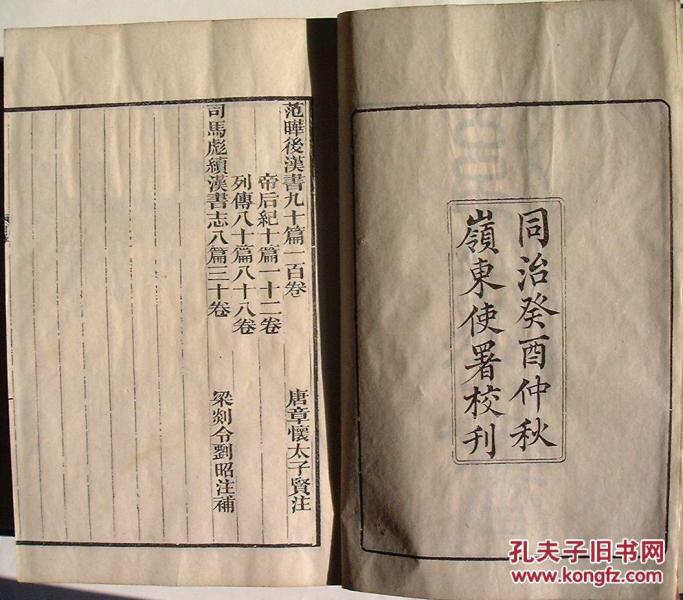 同治癸酉仲秋
嶺東使署校刊
范曄後漢書九十篇一百卷 唐章懷太子賢注
帝后紀十篇一十二卷
列傳八十篇八十八卷
司馬彪續漢書志八篇三十卷 梁剡令劉昭注補
孔夫子旧书网
www.kongfz.com